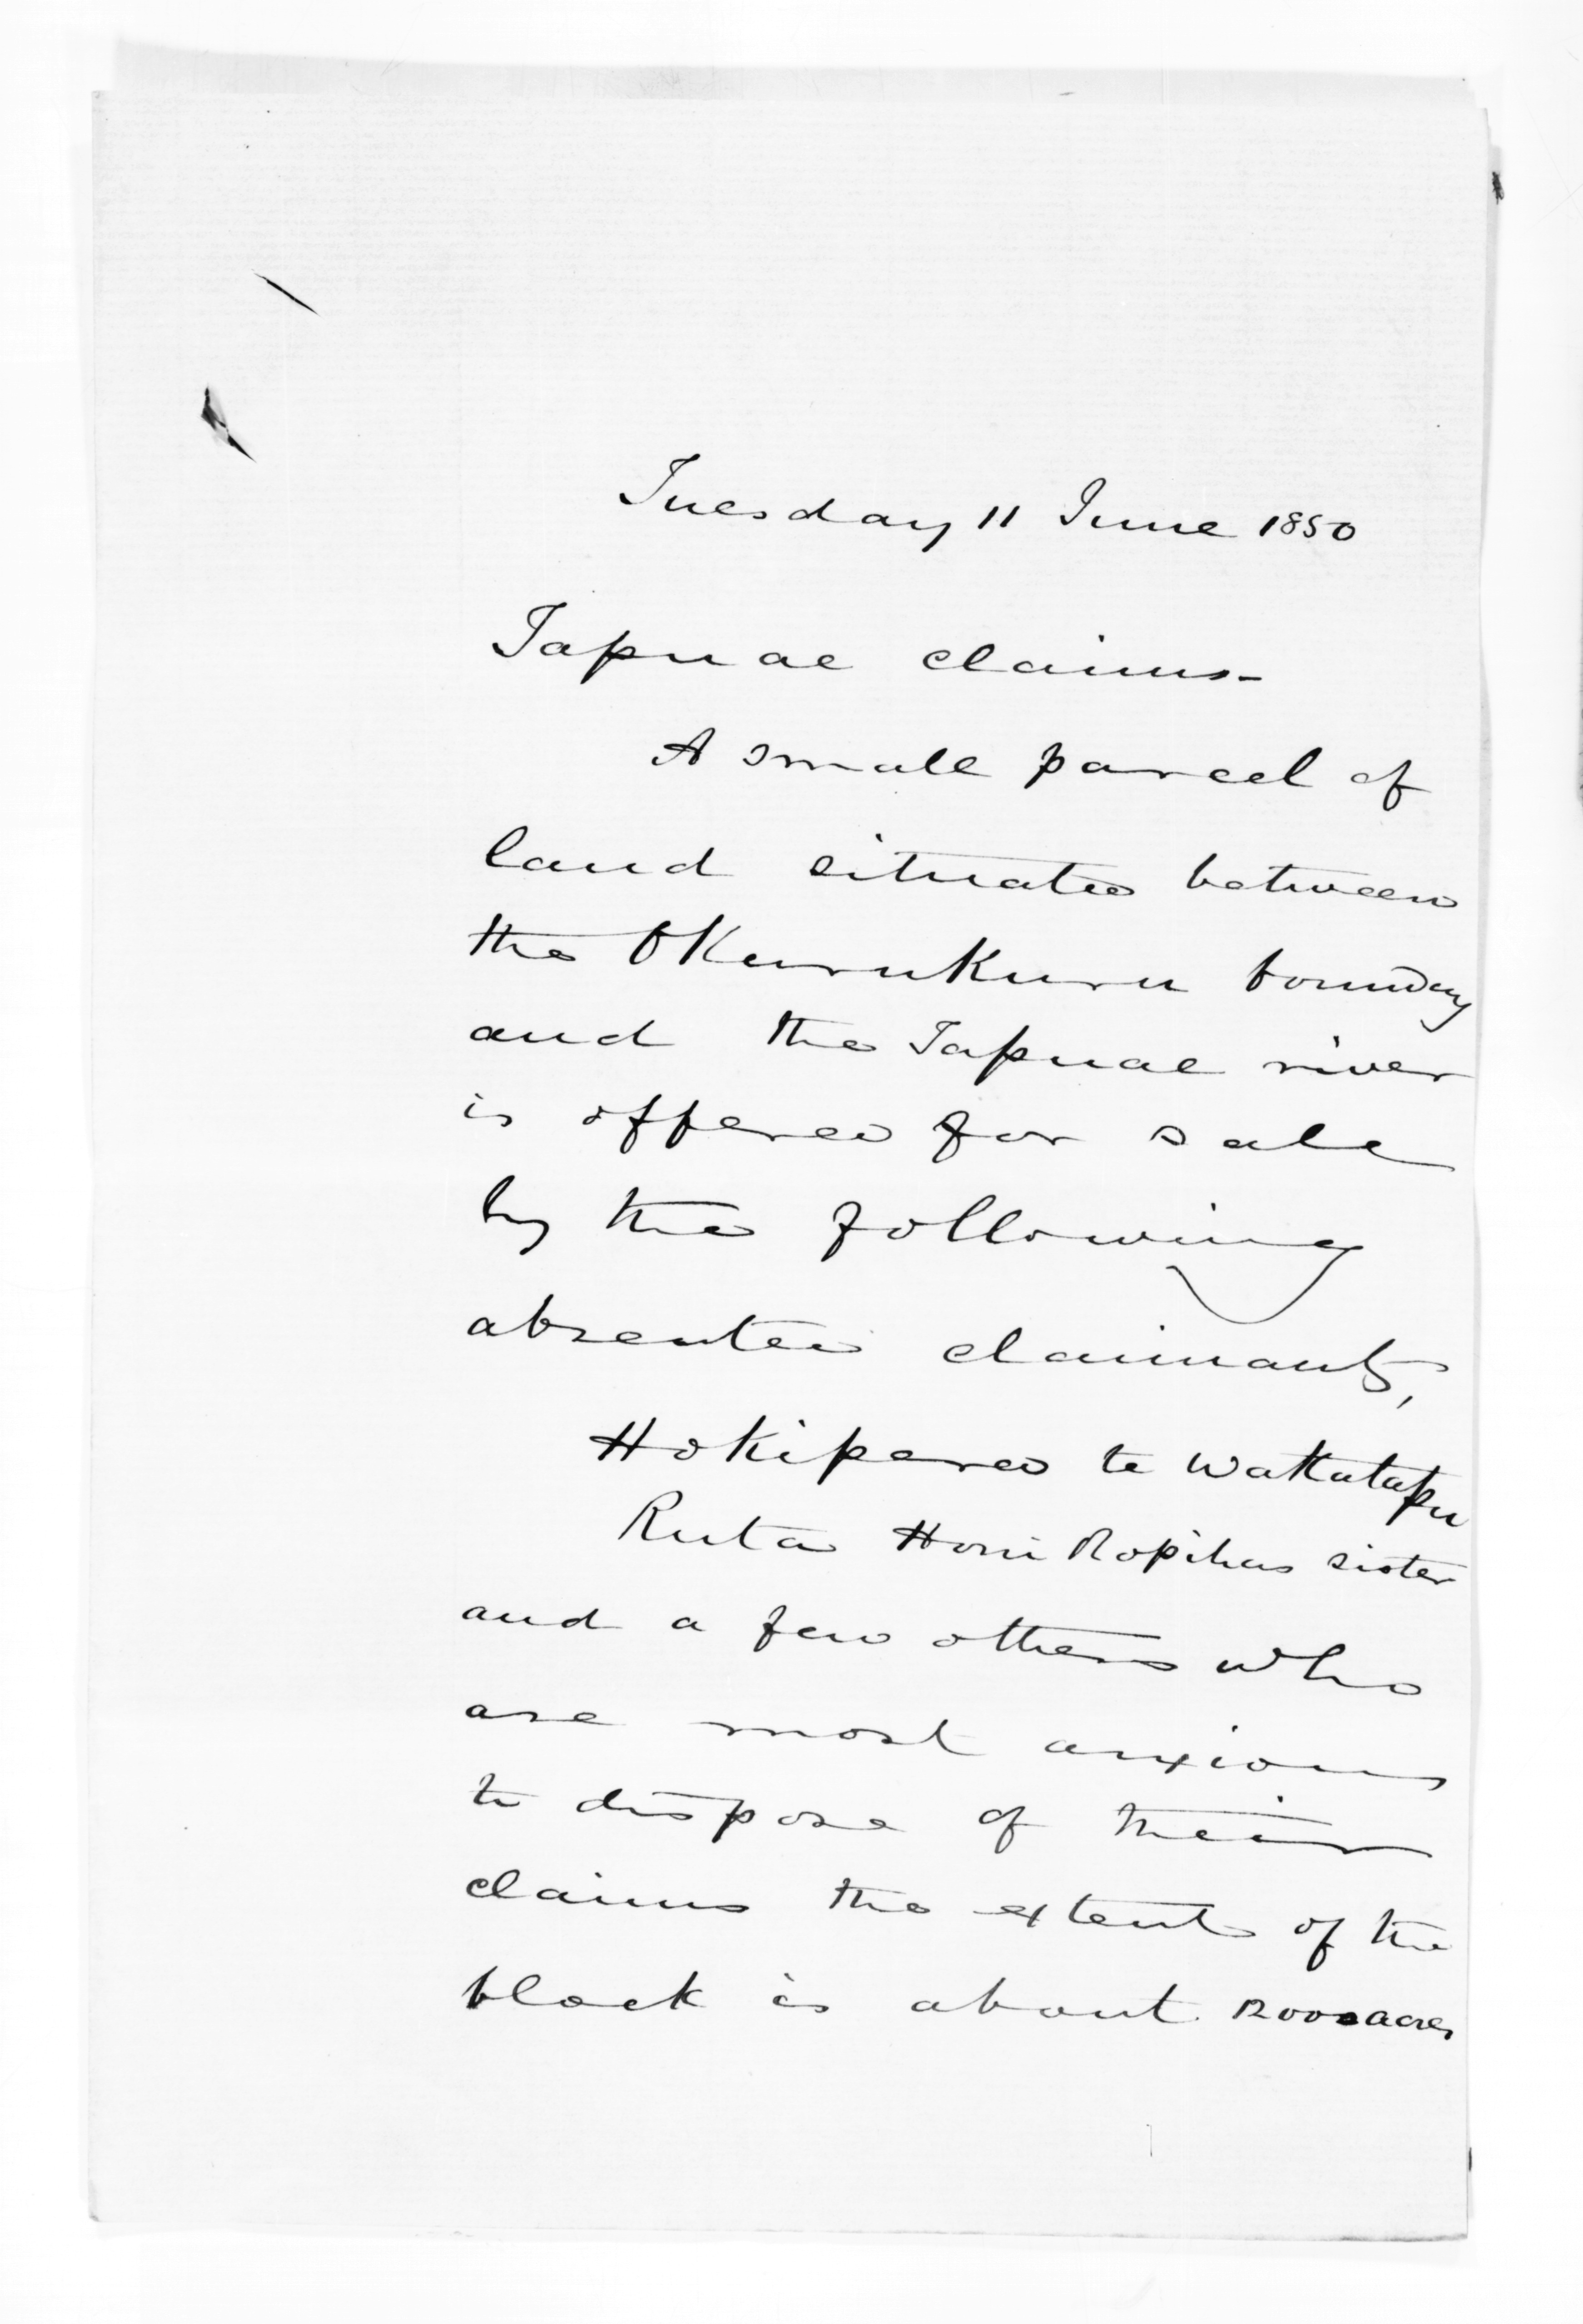 Tuesday 11 June 1850
Tapuae claims -
A small parcel of
land situated between
the OKuruKuru boundary
and the Tapuae river
is offered for sale
by the following
absentee claimants,
Hokipera te Wakatapu
Ruta Honi Ropihas sister
and a few others who
are most anxious
to dispose of their
claims the extent of the
block is about acres